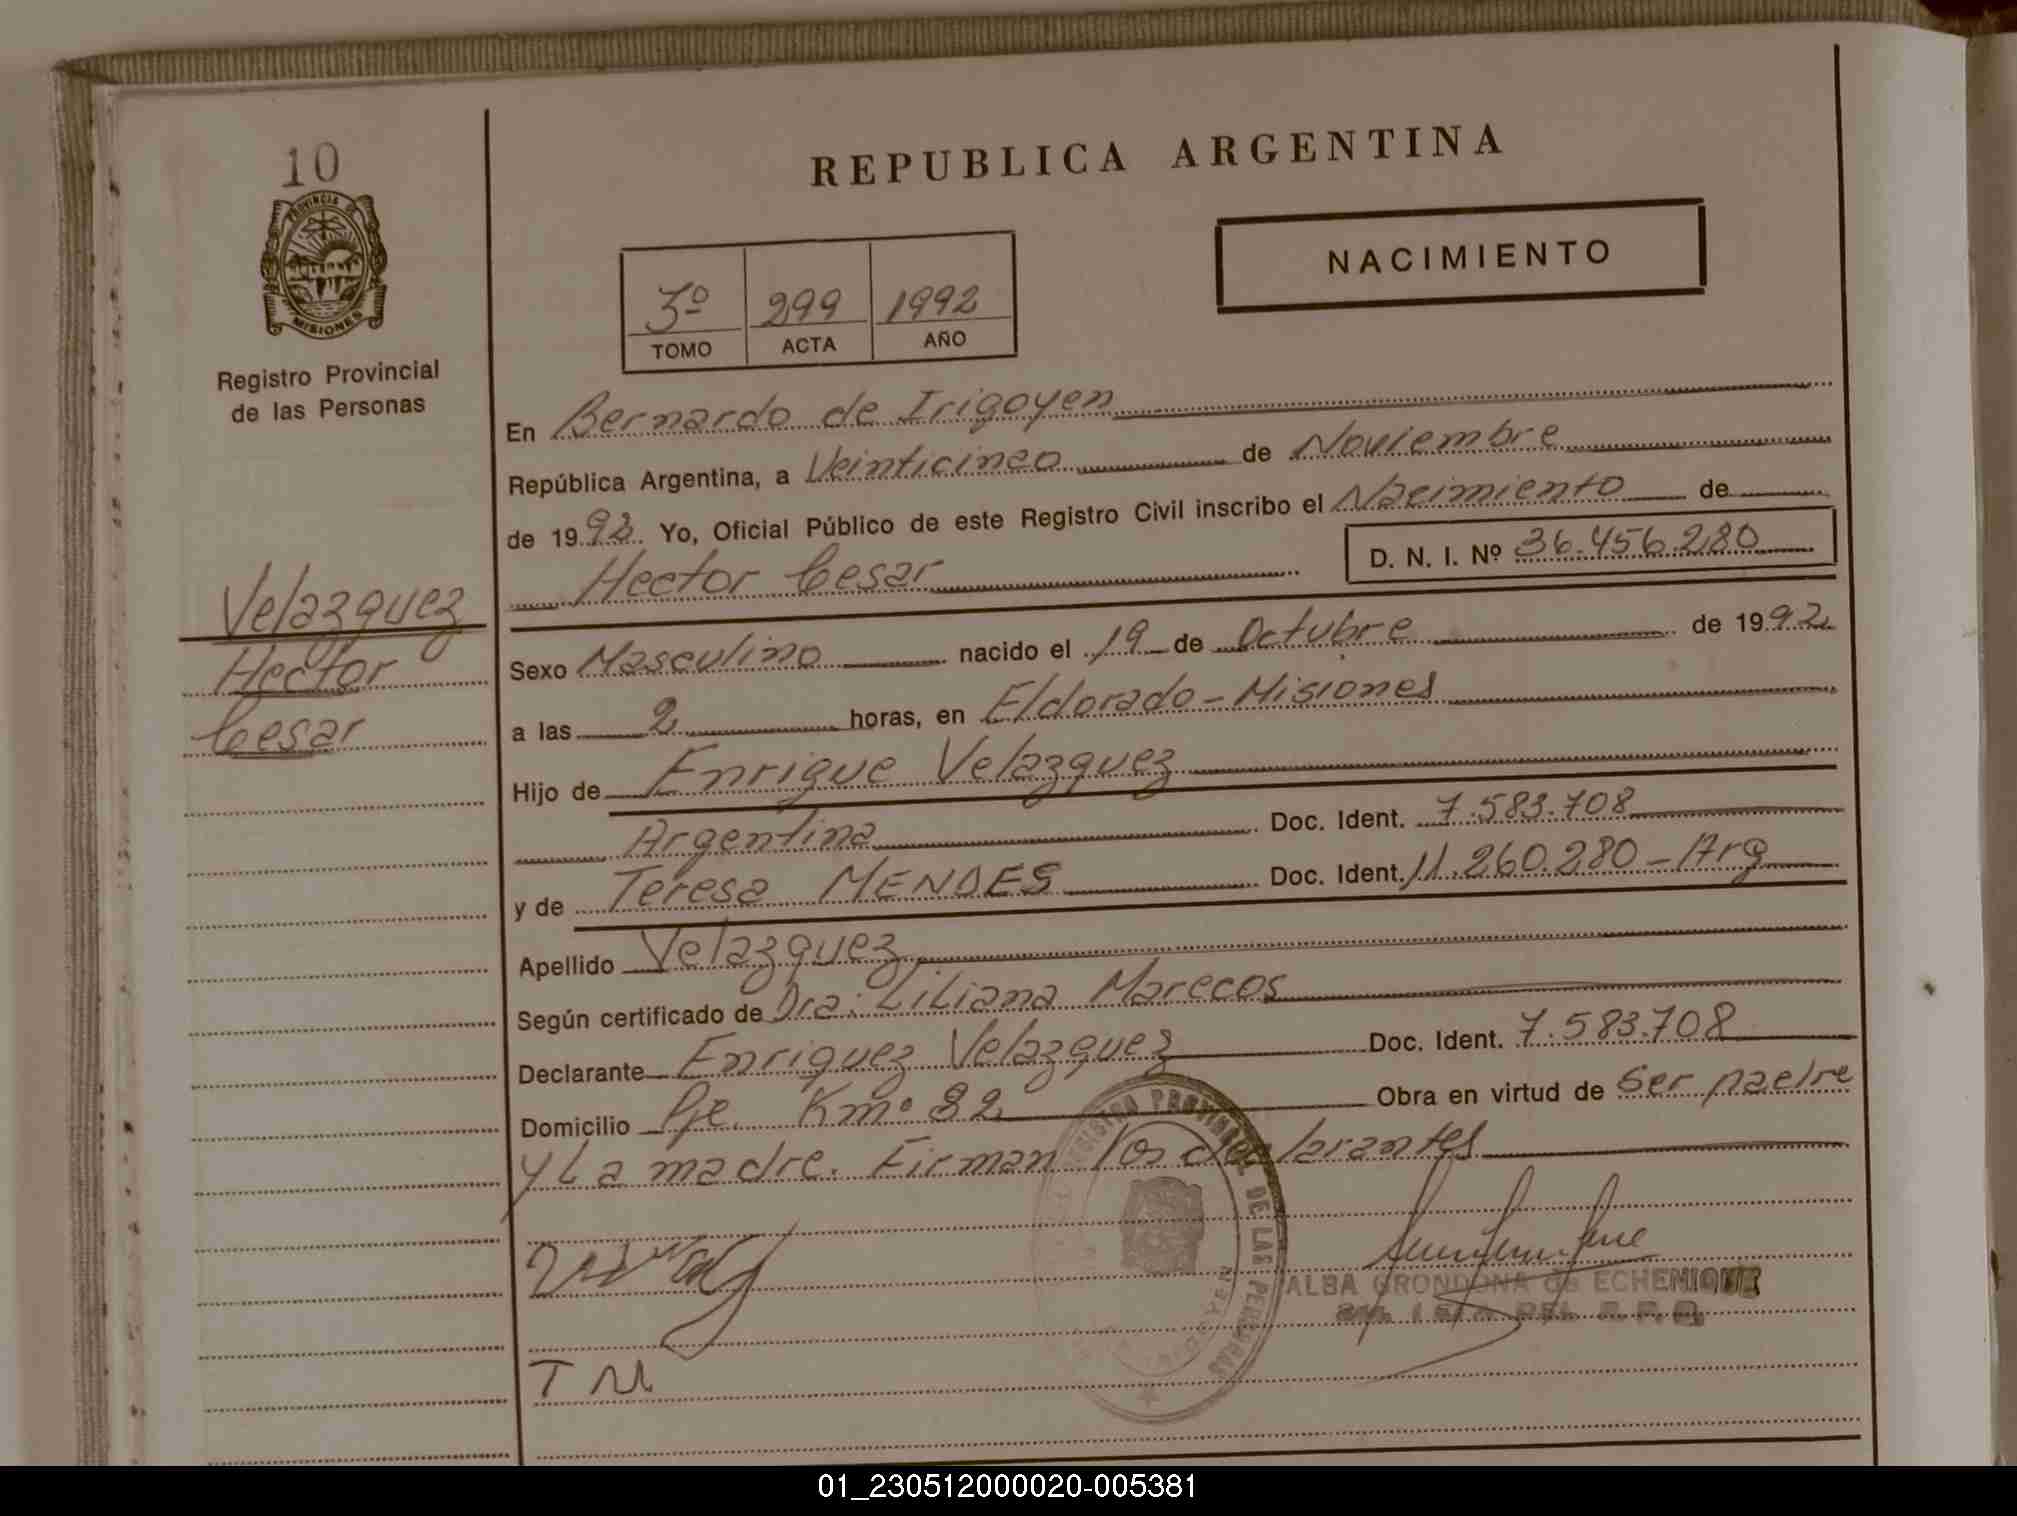 10
PROVINCIA DE
MISIONES
Registro Provincial
de las Personas
REPUBLICA ARGENTINA
NACIMIENTO
3º 299 1992
TOMO ACTA AÑO
En Bernardo de Irigoyen
República Argentina, a Veinticinco de Noviembre
de 1992 Yo, Oficial Público de este Registro Civil inscribo el Nacimiento de
Hector Cesar D. N. I. Nº 36.456.280
Velazquez
Hector
Cesar
Sexo Masculino nacido el 19 de Octubre de 1992
a las 2 horas, en Eldorado - Misiones
Hijo de Enrique Velazquez
Argentina Doc. Ident. 7.583.708
y de Teresa MENDES Doc. Ident. 11.260.280 - Arg
Apellido Velazquez
Según certificado de Dra: Liliana Marecos
Declarante Enriquez Velazquez Doc. Ident. 7.583.708
Domicilio Pje. Km. 82 Obra en virtud de ser padre
y La madre. Firman los declarantes
REGISTRO PROVINCIAL DE LAS PERSONAS
ALBA GRONDONA de ECHENIQUE
T M
01_230512000020-005381